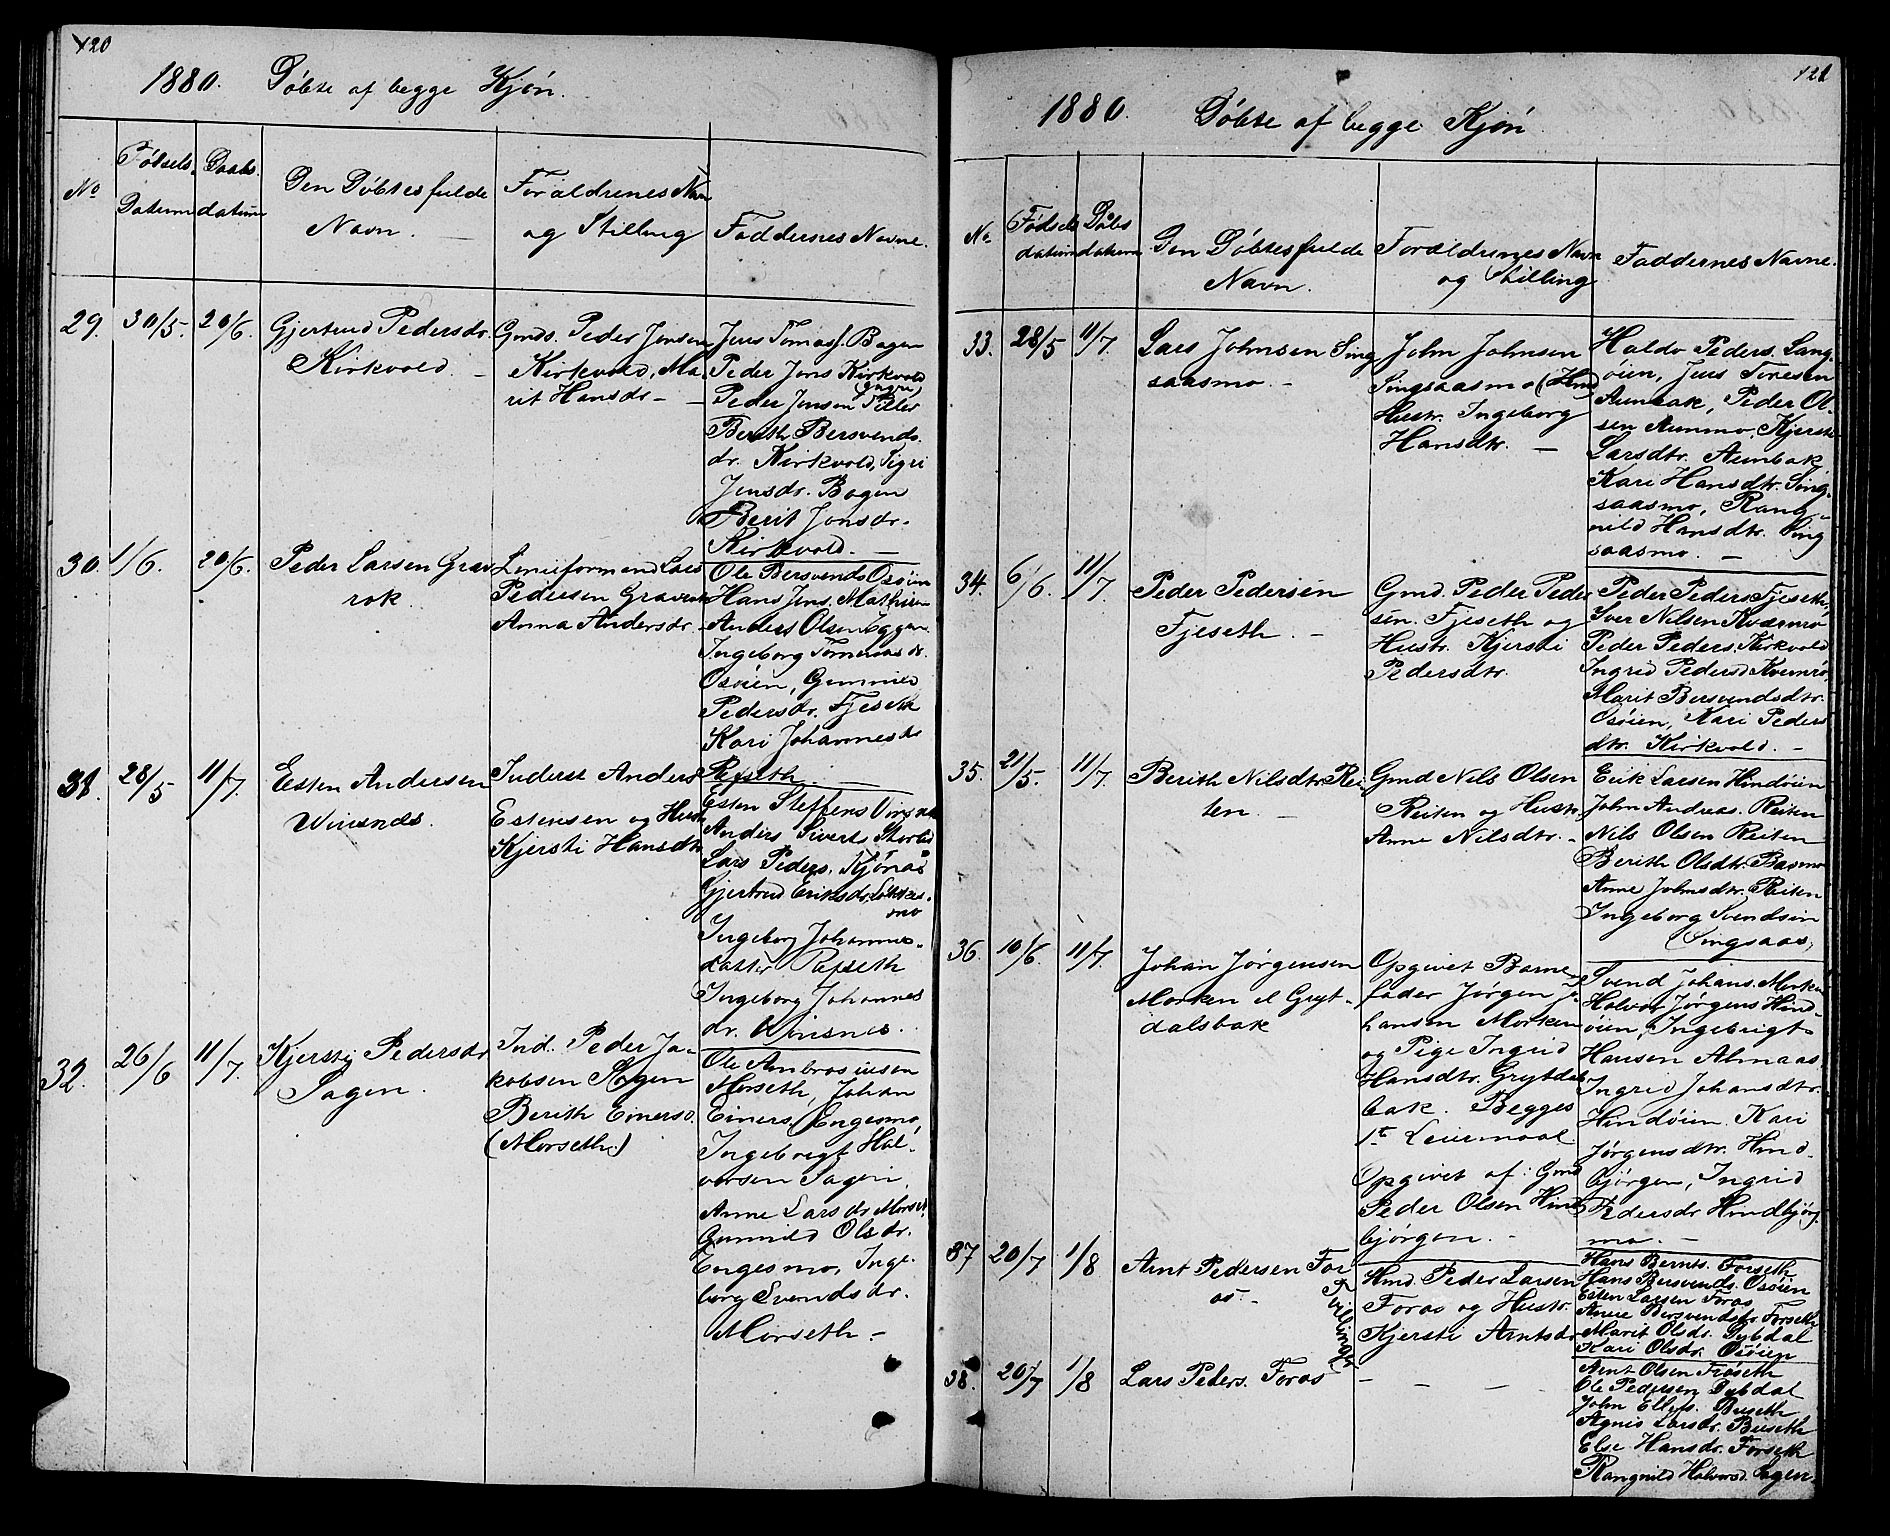 120
1880. Døbte af begge Kjøn.
No
Fødsels Datum
Daabs datum
Den Døbtes fulde
Navn.
Forældrenes Navn
og Stilling
Faddernes Navne.
29. 30/5. 20/6.
Gjertrud Pedersdr.
Kirkvold.
Gmd. Peder Jensen
Kirkvold, Ma-
rit Hansdr.
Jens Tomasf. Bogen
Peder Jens Kirkvold
Peder Jensen
Berith Bersvends.
dr. Kirkvold, Sigri
Jensdr. Bogen
Berit Jonsdr.
Kirkvold.
30. 1/6. 20/6.
Peder Larsen Grav
rok.
Linieformand Lars
Pedersen Gravrok
Anna Andersdr.
Ole Bersvends Osøien
Hans Jens. Mathisen
Anders Olsen
Ingeborg Tomasdr.
Osøien, Gunnild
Pedersdr. Fjeseth
Kari Johannesdr
Refseth.
31. 28/5 11/7.
Esten Andersen
Winsnes.
Inderst Anders
Estensen og Hustr
Kjersti Hansdtr
Esten Steffens Vinsnes
Anders Siverts
Lars Peders. Kjønaas
Gjertrud Eriksdr.
mo
Ingeborg Johannes-
datter Refseth
Ingeborg Johannes
dr. Winsnes.
32. 26/6 11/7.
Kjersti Pedersdr
Sagen.
Ind. Peder Ja-
kobsen Sagen
Berith Einersd.
(Morseth)
Ole Ambrosiussen
Morseth, Johan
Einers. Engesmo,
Ingebrigt Hal-
vorsen Sagen,
Anne Larsdr. Morset
Gunnild Olsdr.
Engesmo, Inge-
borg Svendsdr.
Morseth –
121
1880. Døbte af begge Kjøn
No
Fødsels datum
Døbs datum
Den Døbtes fulde
Navn.
Forældrenes Navn
og Stilling
Faddernes Navne.
33. 28/5 11/7.
Lars Johnsen Sing
saasmo. –
John Johnsen
Singsaasmo (Hmd)
Hustr. Ingeborg
Hansdtr. –
Haldo Peders. Lang-
øien, Jens Toresen
Aunbak, Peder Ol-
sen Aunmo, Kjersti
Larsdtr. Aunbak,
Kari Hansdtr. Sing-
saasmo, Rang-
nild Hansdtr. Sing
saasmo. –
34. 6/6. 11/7.
Peder Pedersen
Fjeseth. –
Gmd. Peder Peder
sen. Fjeseth og
Hustr. Kjersti
Pedersdtr.
Peder Peders Fjeseth,
Iver Nilsen Kværnrø
Peder Peders. Kirkvold
Ingrid Pedersd Kværnrø,
Marit Bersvendsdtr.
Osøien, Kari Peders
dtr. Kirkvold. –
35. 21/5 11/7.
Berith Nilsdtr. Rei-
ten. –
Gmd Nils Olsen
Reiten og Hustr.
Anne Nilsdtr. –
Erik Larsen Hindøien
John Andreas. Reiten
Nils Olsen Reiten
Berith Olsdtr. Basmo
Anne Johnsdtr. Reiten
Ingeborg Svendsen
(Singsaas)
36. 10/6. 11/7.
Johan Jørgensen
Morken el Gryt-
dalsbak
Opgivet Barne-
fader Jørgen Jo-
hansen Morken
og Pige Ingrid
Hansdtr. Grytdals
bak. Begges
1te Leiermaal.
Opgivet af: Gmd
Peder Olsen Hind
bjørgen. –
Svend Johans. Morken
Halvor Jørgens Hind-
øien, Ingebrigt
Hansen Almaas,
Ingrid Johansdtr.
Hindøien, Kari
Jørgensdtr. Hind-
bjørgen, Ingrid
Pedersdr Hindbjørg-
mo. –
37 20/7 1/8
Arnt Pedersen For
os. –
Tvillinger
Hmd. Peder Larsen
Foros og Hustr.
Kjersti Arntsdr
Hans Bernts. Forseth
Hans Bersvends. Osøien
Esten Larsen Foros
Anne Bersvendsdtr Forseth
Marit Olsdr. Dybdal
Kari Olsdr. Osøien
38. 20/7 1/8
Lars Peders. Foros
– – –
Arnt Olsen Frøseth
Ole Pedersen Dybdal
John Ellefs. Buseth
Agnis Larsdr. Buseth
Else Hansdr. Forseth
Rangnild Halvorsd. Sagen